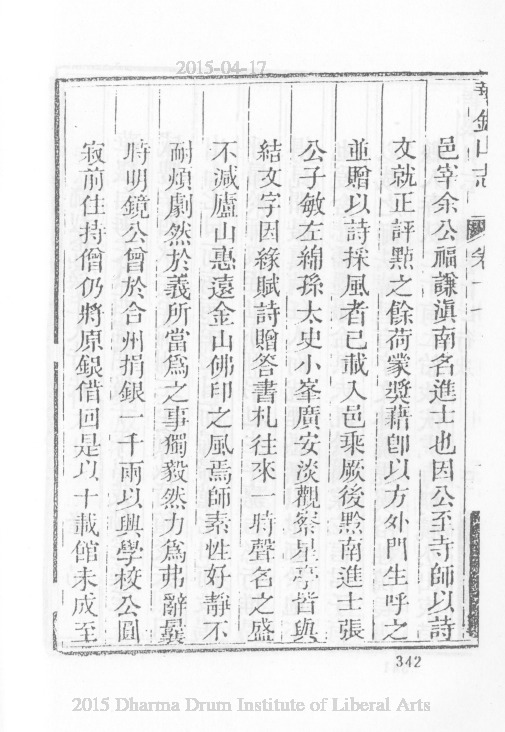 2015-04-17
華銀山志 卷十一
邑宰余公福謙滇南名進士也因公至寺師以詩
文就正評點之餘荷蒙奬藉卽以方外門生呼之
並贈以詩採風者已載入邑乘厥後黔南進士張
公子敏左綿孫太史小峯廣安淡觀察星亭皆與
結文字因緣賦詩贈答書札往來一時聲名之盛
不減廬山惠遠金山佛印之風焉師素性好靜不
耐煩劇然於義所當爲之事獨毅然力爲弗辭曩
時明鏡公曾於合州捐銀一千兩以興學校公圓
寂前住持僧仍將原銀借回是以十載館未成至
342
2015 Dharma Drum Institute of Liberal Arts